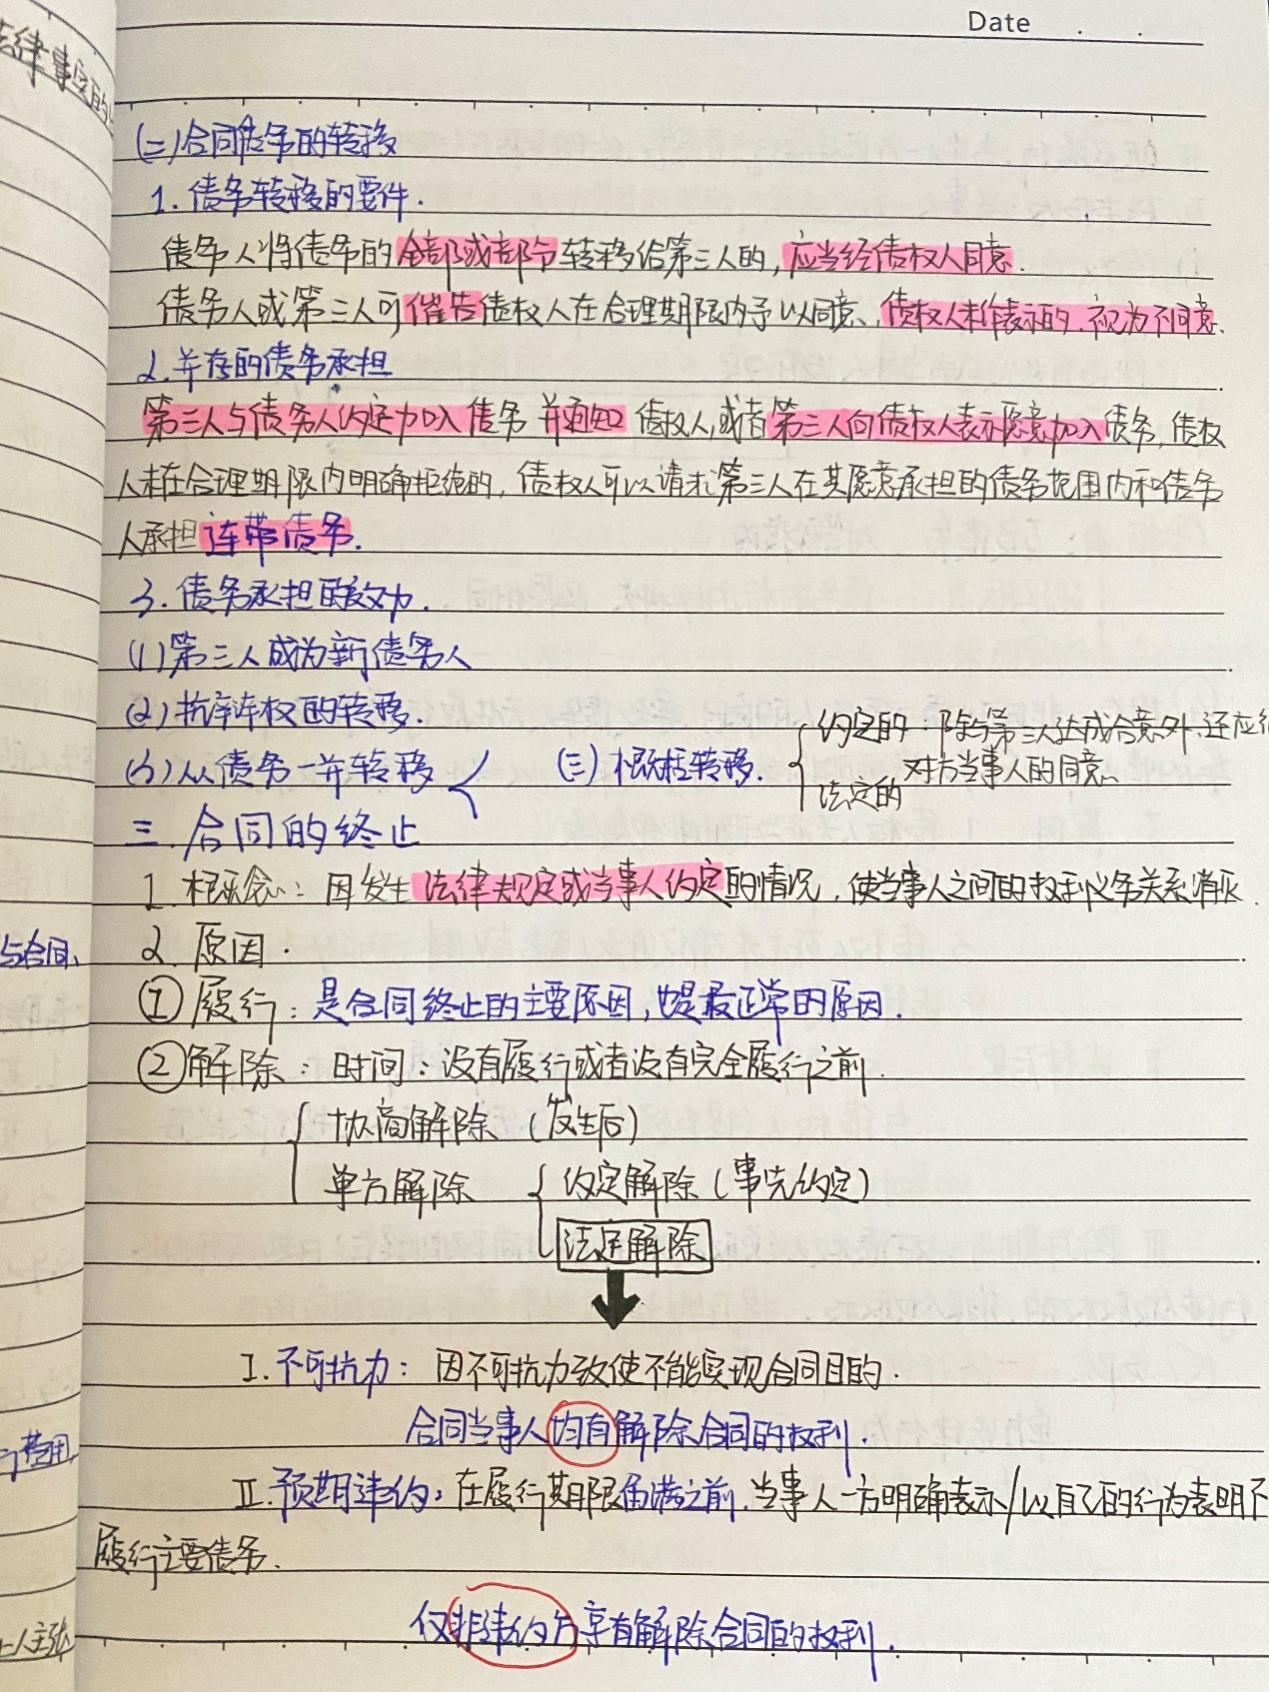 Date
法律事实的
(二)合同债务的转移
1. 债务转移的要件.
债务人将债务的全部或部分转移给第三人的,应当经债权人同意.
债务人或第三人可催告债权人在合理期限内予以同意,债权人未作表示的,视为不同意.
2. 并存的债务承担
第三人与债务人约定加入债务并通知债权人,或者第三人向债权人表示愿意加入债务,债权
人未在合理期限内明确拒绝的,债权人可以请求第三人在其愿意承担的债务范围内和债务
人承担连带债务.
3. 债务承担的效力.
(1)第三人成为新债务人
(2)抗辩权的转移.
(3)从债务一并转移
(三)概括转移.
约定的:除与第三人达成合意外,还应经
对方当事人的同意.
法定的
三.合同的终止
1. 概念:因发生法律规定或当事人约定的情况,使当事人之间的权利义务关系消灭.
与合同,
2. 原因.
①履行:是合同终止的主要原因,也是最正常的原因.
②解除:时间:没有履行或者没有完全履行之前.
协商解除(发生后)
单方解除
约定解除(事先约定)
法定解除
I.不可抗力:因不可抗力致使不能实现合同目的.
合同当事人均有解除合同的权利.
费用,
II.预期违约:在履行期限届满之前,当事人一方明确表示/以自己的行为表明不
履行主要债务.
仅非违约方享有解除合同的权利.
人主张